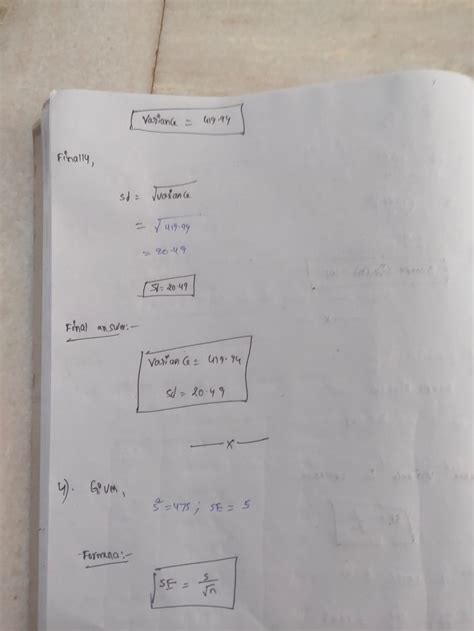 Variance = 419.94
Finally,
Sd = √variance
= √419.94
= 20.49
Sd = 20.49
Final answer:-
Variance = 419.94
Sd = 20.49
—x—
4). Given,
S² = 475 ; SE = 5
Formula:-
SE = s/√n